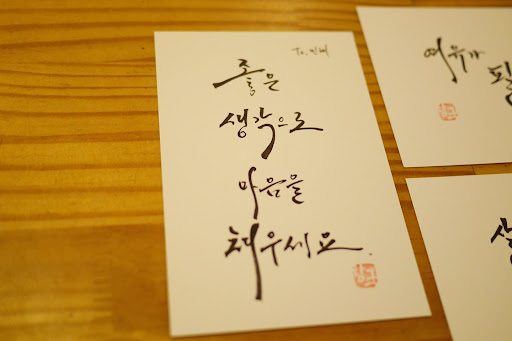 To. 민혜
좋은
생각으로
마음을
채우세요.
여유가